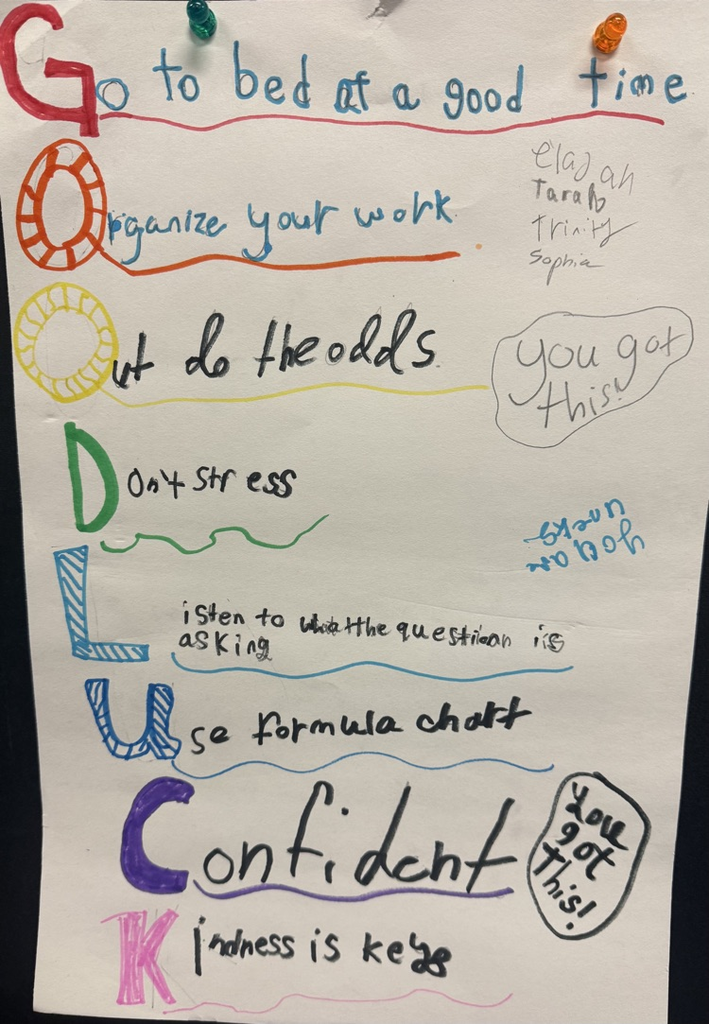 Go to bed at a good time
Elajah
Tarah
Trinity
Sophia
Organize your work
Out do the odds
you got
this!
Don't stress
Listen to what the question is
asking
Use formula chart
Confidnt
You
got
This!
Kindness is keys